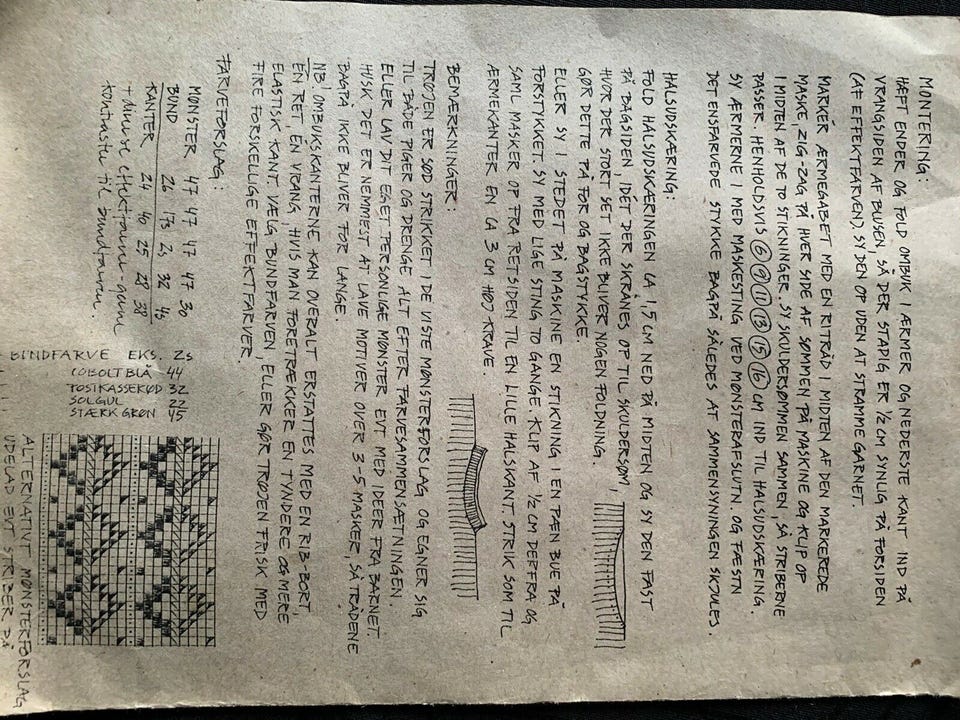 MONTERING:
HÆFT ENDER OG FOLD OMBUK I ÆRMER OG NEDERSTE KANT IND PÅ
VRANGSIDEN AF BLUSEN, SÅ DER STADIG ER 1/2 CM SYNLIG PÅ FORSIDEN
(AF EFFEKTFARVEN). SY DEN OP UDEN AT STRAMME GARNET.
MARKÉR ÆRMEGABET MED EN RITRÅD I MIDTEN AF DEN MARKEREDE
MASKE, ZIG-ZAG PÅ HVER SIDE AF SØMMEN PÅ MASKINE OG KLIP OP
I MIDTEN AF DE TO STIKNINGER. SY SKULDERSØMMEN SAMMEN, SÅ STRIBERNE
PASSER. HENHOLDSVIS 6 9 11 13 15 16 CM IND TIL HALSUDSKÆRING.
SY ÆRMERNE I MED MASKESTING VED MØNSTERAFSLUTN. OG FÆSTN
DET ENSFARVEDE STYKKE BAGPÅ SÅLEDES AT SAMMENSYNINGEN SKJULES.
HALSUDSKÆRING:
FOLD HALSUDSKÆRINGEN CA 1,5 CM NED PÅ MIDTEN OG SY DEN FAST
PÅ BAGSIDEN, IDET DER SKRÅNES OP TIL SKULDERSØM,
HVOR DER STORT SET IKKE BLIVER NOGEN FOLDNING.
GØR DETTE PÅ FOR OG BAGSTYKKE.
ELLER SY I STEDET PÅ MASKINE EN STIKNING I EN PÆN BUE PÅ
FORSTYKKET. SY MED LIGE STING TO GANGE. KLIP AF 1/2 CM DERFRA OG
SAML MASKER OP FRA RETSIDEN TIL EN LILLE HALSKANT. STRIK SOM TIL
ÆRMEKANTER EN CA 3 CM HØJ KRAVE.
BEMÆRKNINGER:
TRØJEN ER SØD STRIKKET I DE VISTE MØNSTERFORSLAG OG EGNER SIG
TIL BÅDE PIGER OG DRENGE ALT EFTER FARVESAMMENSÆTNINGEN.
ELLER LAV DIT EGET PERSONLIGE MØNSTER EVT MED IDEER FRA BARNET.
HUSK DET ER NEMMEST AT LAVE MOTIVER OVER 3-5 MASKER, SÅ TRÅDENE
BAGPÅ IKKE BLIVER FOR LANGE.
NB! OMBUKSKANTERNE KAN OVERALT ERSTATTES MED EN RIB-BORT,
EN RET, EN VRANG, HVIS MAN FORETRÆKKER EN TYNDERE OG MERE
ELASTISK KANT. VÆLG BUNDFARVEN, ELLER GØR TRØJEN FRISK MED
FIRE FORSKELLIGE EFFEKTFARVER.
FARVEFORSLAG:
MØNSTER 47 47 47 47 30
BUND 26 173 2s 32 43
KANTER 24 40 25 28 38
+ diverse effektfarve-garn i
kontraste til bundfarven.
BUNDFARVE EKS. 2s
COBOLTBLÅ 44
POSTKASSERØD 32
SOLGUL 22
STÆRK GRØN 45
ALTERNATIVT MØNSTERFORSLAG
UDELAD EVT STRIBER PÅ